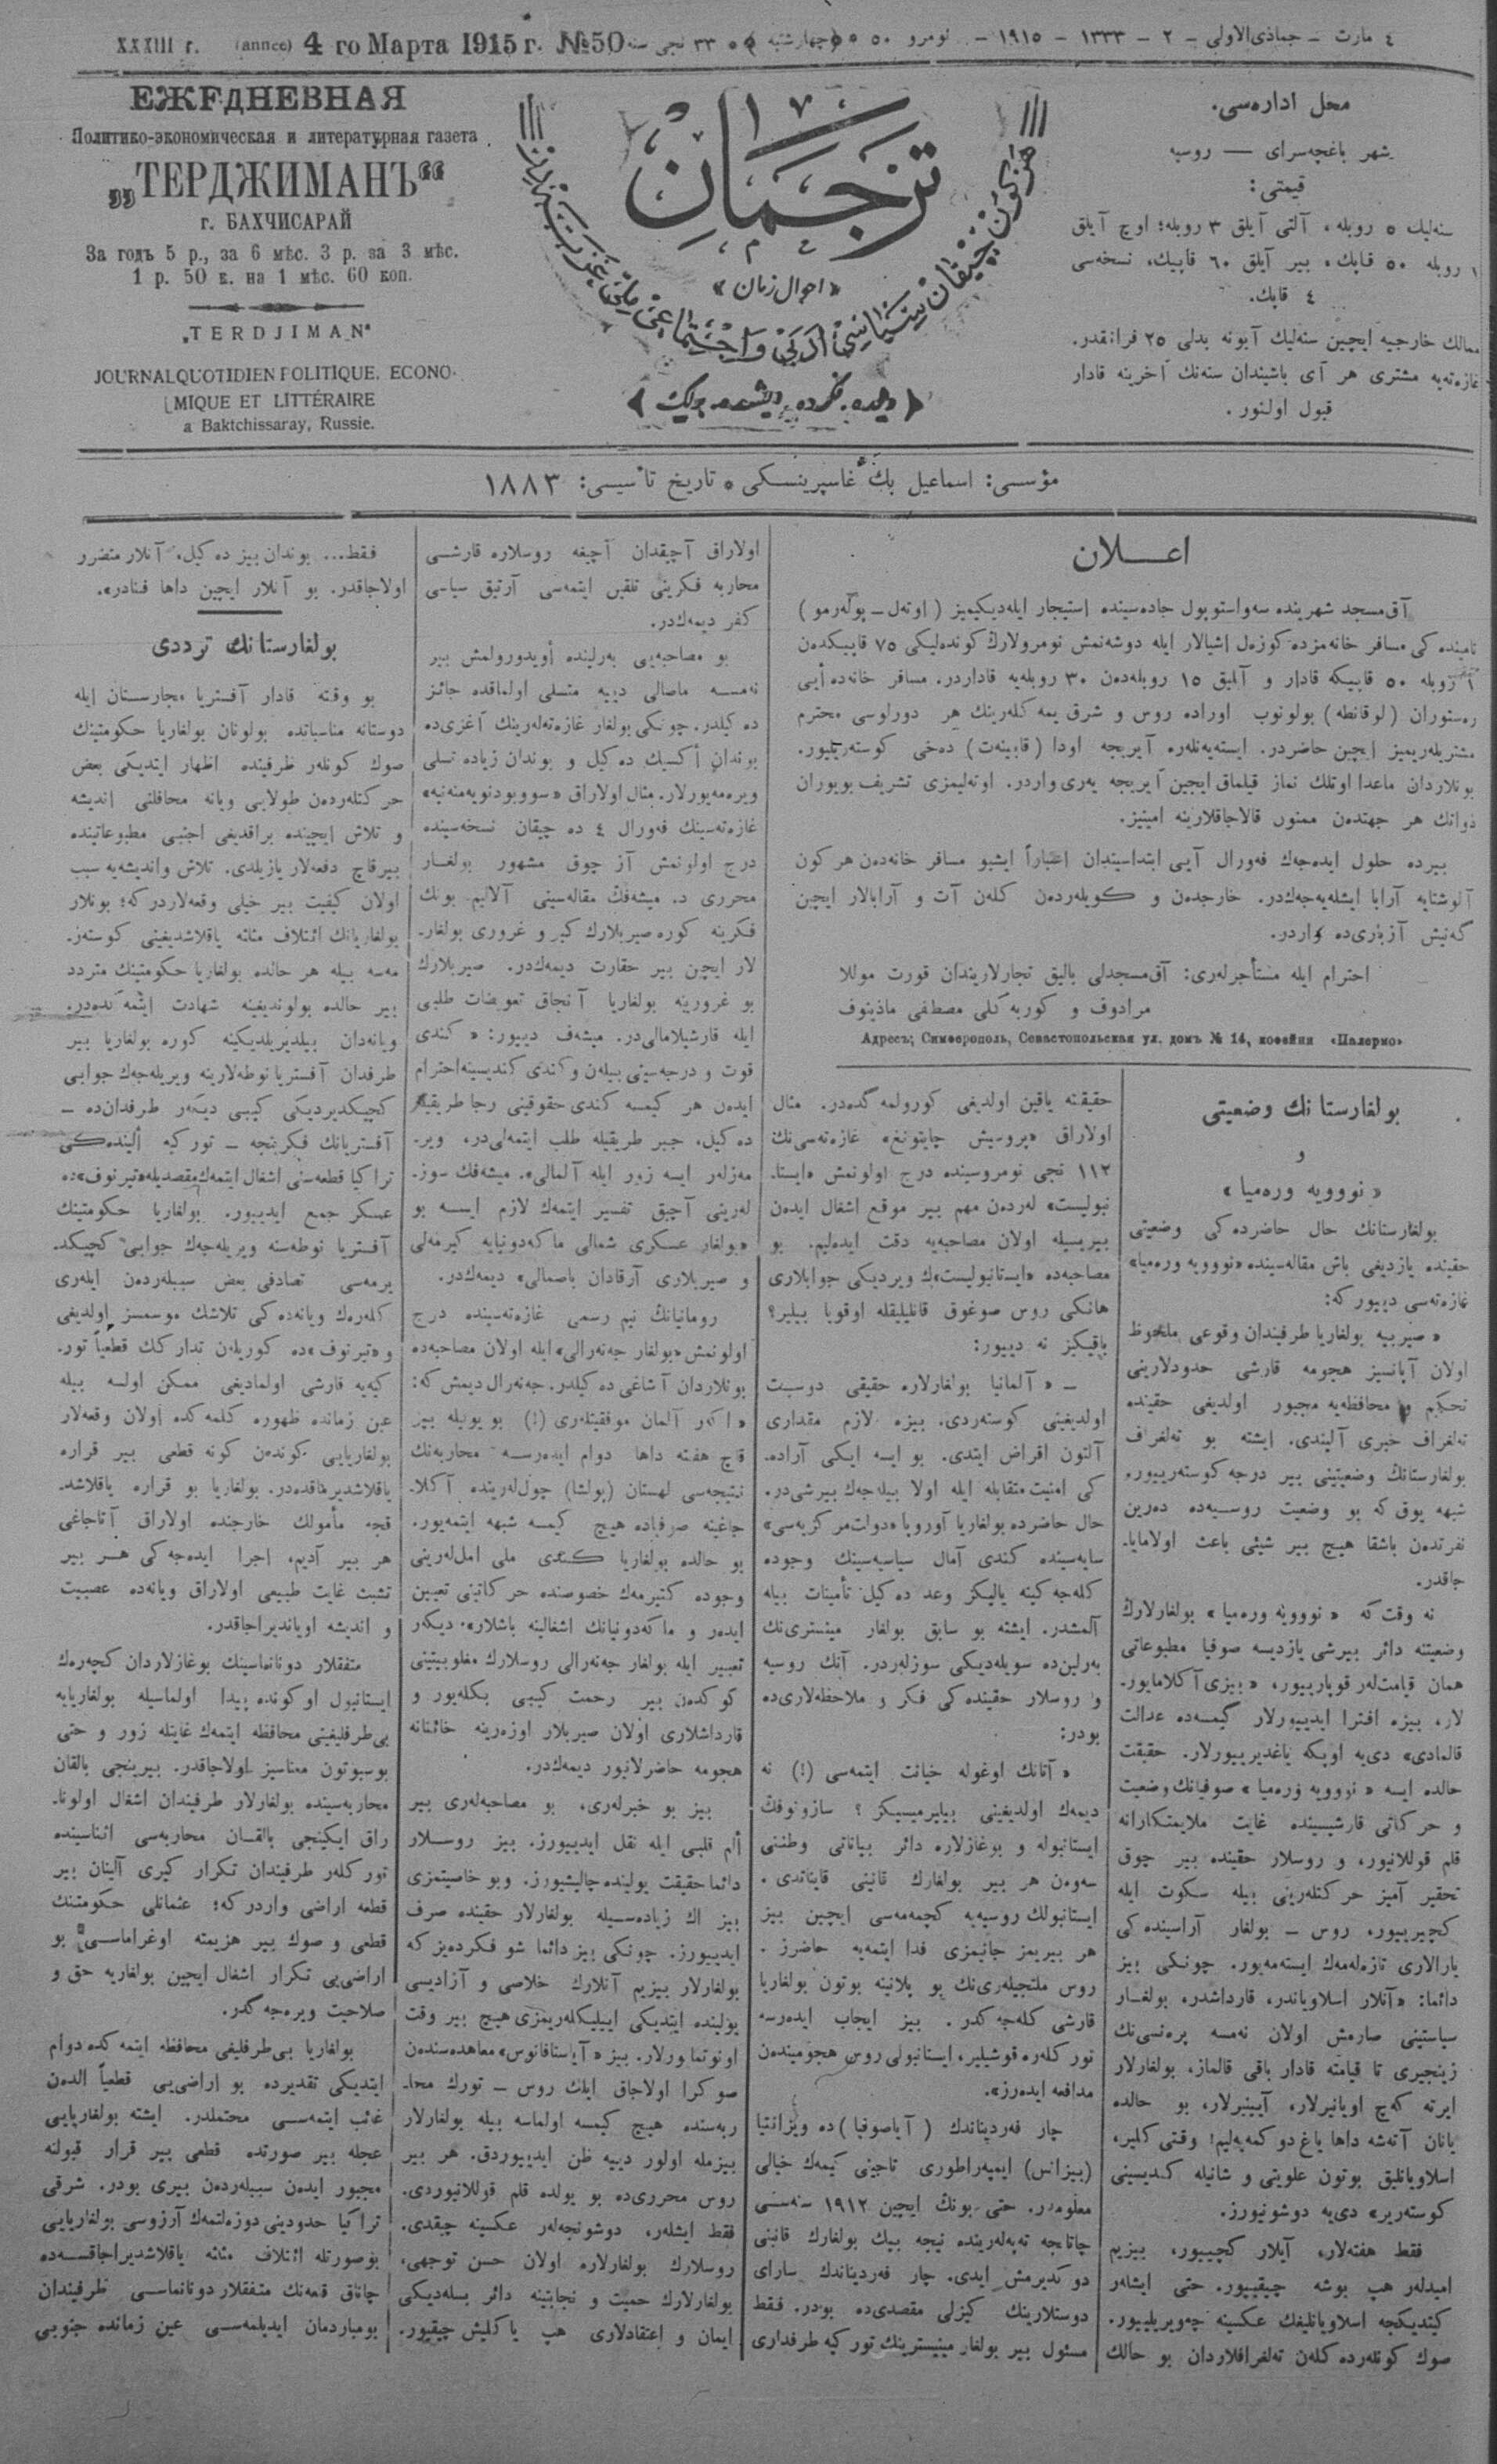 XXXIII г. (annee) 4 го Марта 1915 г. №50 ٣٣ نجى سنه ٥ ﴿چهارشنبه﴾ ٥ نومرو ٥٠ – ١٩١٥ – ١٣٣٣ – ٢ – جماذى‌الاولى – ٤ مارت
ЕЖЕДНЕВНАЯ
Политико-экономическая и литературная газета
„ТЕРДЖИМАНЪ“
г. БАХЧИСАРАЙ
За годъ 5 р., за 6 мѣс. 3 р. за 3 мѣс.
1 р. 50 к. на 1 мѣс. 60 коп.
„TERDJIMAN"
JOURNAL QUOTIDIEN POLITIQUE, ECONO-
MIQUE ET LITTÉRAIRE
a Baktchissaray, Russie.
ترجمان
«احوال زمان»
هر كون چيقان سياسى، ادبى و اجتماعى ملى غزته‌در
﴿ ديلده، فكرده، ايشده بيرلك ﴾
محل اداره‌سى.
شهر باغچه‌سراى — روسيه
قيمتى:
سنه‌ليك ٥ روبله، آلتى آيلق ٣ روبله؛ اوچ آيلق
١ روبله ٥٠ قاپك، بير آيلق ٦٠ قاپيك، نسخه‌سى
٤ قاپك.
ممالك خارجيه ايچين سنه‌ليك آبونه بدلى ٢٥ فرانقدر.
غازه‌ته‌يه مشترى هر آى باشيندان سنه‌نك آخرينه قادار
قبول اولنور.
مؤسسى: اسماعيل بك غاسپرينسكى ٥ تاريخ تأسيسى: ١٨٨٣
اعلان
آق‌مسجد شهرينده سه‌واستوپول جاده‌سينده استيجار ايله‌ديكيميز (اوتەل – پولەرمو)
نامينده كى مسافر خانه‌مزده كوزه‌ل اشيالار ايله دوشه‌نمش نومرولارڭ كونده‌ليكى ٧٥ قاپيكدەن
١ روبله ٥٠ قاپيكه قادار و آيليق ١٥ روبله‌دەن ٣٠ روبله‌يه قاداردر. مسافر خانه‌ده أيى
رەستوران (لوقانطه) بولونوب اوراده روس و شرق يمه‌كله‌رينك هر دورلوسى محترم
مشتريله‌ريميز ايچين حاضردر. ايسته‌يه‌نله‌ره آيريجه اودا (قابينەت) دەخى كوسته‌ريليور.
بونلاردان ماعدا اوتلك نماز قيلماق ايچين آيريجه يه‌رى واردر. اوته‌ليمزى تشريف بويوران
ذواتك هر جهتدەن ممنون قالاجاقلارينه امينيز.
بيرده حلول ايده‌جه‌ك فه‌ورال آيى ابتداسيندان اعتباراً ايشبو مسافر خانه‌دەن هر كون
آلوشتايه آرابا ايشله‌يه‌جه‌كدر. خارجدەن و كويله‌ردەن كله‌ن آت و آرابالار ايچين
گه‌نيش آزبارى‌ده واردر.
احترام ايله مستأجرله‌رى: آق‌مسجدلى باليق تجارلاريندان قورت موللا
مرادوف و كوربه‌كلى مصطفى ماذينوف
Адресъ: Симферополь, Севастопольская ул. домъ № 14, кофейня «Палермо»
بولغارستانك وضعيتى
و
«نوويه ورەميا»
بولغارستانك حال حاضرده كى وضعيتى
حقينده يازديغى باش مقاله‌سينده «نوويه ورەميا»
غازه‌ته‌سى دييور كه:
«صيربيه بولغاريا طرفيندان وقوعى ملحوظ
اولان آپانسيز هجومه قارشى حدودلارينى
تحكيم و محافظه‌يه مجبور اولديغى حقينده
تەلغراف خبرى آليندى. ايشته بو تەلغراف
بولغارستانك وضعيتينى بير درجه كوسته‌رييور،
شبهه يوق كه بو وضعيت روسيه‌ده دەرين
نفرتدەن باشقا هيچ بير شيئى باعث اولاما-
جاقدر.
نه وقت كه «نوويه ورەميا» بولغارلارك
وضعيتنه دائر بيرشى يازديسه صوفيا مطبوعاتى
همان قيامت‌لەر قوپارييور، «بيزى آكلامايور-
لار، بيزه افترا ايدييورلار كيمسه‌ده عدالت
قالمادى» دىيه اوپكه ياغديرييورلار. حقيقت
حالده ايسه «نوويه ورەميا» صوفيانك وضعيت
و حركاتى قارشيسينده غايت ملايمتكارانه
قلم قوللانيور، و روسلار حقينده بير چوق
تحقير آميز حركتله‌رينى بيله سكوت ايله
كچيرييور، روس – بولغار آراسينده كى
يارالارى تازه‌له‌مه‌ك ايسته‌مه‌يور. چونكى بيز
دائما: «آنلار اسلاوياندر، قارداشدر، بولغار
سياستينى صارمش اولان نەمسه پرەنسى‌نك
زينجيرى تا قيامته قادار باقى قالماز، بولغارلار
ايرته كه‌چ اويانيرلار، آيينيرلار، بو حالده
يانان آتەشه داها ياغ دوكمه‌يه‌ليم! وقتى كلير،
اسلاويانليق بوتون علويتى و شانيله كنديسينى
كوسته‌رير» دىيه دوشونيورز.
فقط هفته‌لار، آيلار كچييور، بيزيم
اميدلەر هپ بوشه چيقييور. حتى ايشلەر
كيتديكجه اسلاويانليغك عكسينه چه‌ويريلييور.
صوك كونله‌رده كله‌ن تەلغرافلاردان بو حالك
حقيقته ياقين اولديغى كورولمه‌گده‌در. مثال
اولاراق «پروسيش چايتونغ» غازه‌ته‌سى‌نك
١١٢ نجى نومروسينده درج اولونمش «ايستا-
نبوليست» لەردەن مهم بير موقع اشغال ايدەن
بيريسيله اولان مصاحبه‌يه دقت ايده‌ليم. بو
مصاحبه‌ده «ايستانبوليست»ك ويرديكى جوابلارى
هانكى روس صوغوق قانليليقله اوقويا بيلير؟
باقيكيز نه دييور:
– «آلمانيا بولغارلاره حقيقى دوست
اولديغينى كوسته‌ردى. بيزه لازم مقدارى
آلتون اقراض ايتدى. بو ايسه ايكى آراده-
كى امنيت متقابله ايله اولا بيله‌جه‌ك بيرشى‌در.
حال حاضرده بولغاريا آوروپا «دولت مركزيه‌سى»
سايه‌سينده كندى آمال سياسيه‌سينك وجوده
كله‌جه‌كينه ياليكز وعد ده‌كيل تأمينات بيله
آلمشدر. ايشته بو سابق بولغار مينسترى‌نك
بەرلين‌ده سويله‌ديكى سوزلەردر. آنك روسيه
و روسلار حقينده كى فكر و ملاحظه‌لارى‌ده
بودر:
«آتانك اوغوله خيانت ايتمه‌سى (!) نه
ديمه‌ك اولديغينى بيليرميسيكز؟ سازونوفك
ايستانبوله و بوغازلاره دائر بياناتى وطننى
سه‌وەن هر بير بولغارك قانينى قايناتدى.
ايستانبولك روسيه‌يه كچمه‌مه‌سى ايچين بيز
هر بيريمز جانيمزى فدا ايتمه‌يه حاضرز.
روس ملتجيله‌رى‌نك بو پلانينه بوتون بولغاريا
قارشى كله‌جه‌كدر. بيز ايجاب ايدەرسه
توركله‌ره قوشيلير، ايستانبولى روس هجوميندەن
مدافعه ايدەرز».
چار فەرديناندك (آياصوفيا) ده ويزانتيا
(بيزانس) ايمپه‌راطورى تاجينى كيمه‌ك خيالى
معلومدر. حتى بونك ايچين ١٩١٢ سنه‌سنى
چاتالجه تەپه‌له‌رينده نيجه بيك بولغارك قانينى
دوكديرمش ايدى. چار فەرديناندك ساراى
دوستلارينك كيزلى مقصدى‌ده بودر. فقط
مسئول بير بولغار مينيسترينك توركيه طرفدارى
اولاراق آچيقدان آچيغه روسلاره قارشى
محاربه فكرينى تلقين ايتمه‌سى آرتيق سياسى
كفر ديمه‌كدر.
بو مصاحبه‌يى بەرلينده أويدورولمش بير
نەمسه ماصالى دييه متسلى اولماقده جائز
ده‌كيلدر. چونكى بولغار غازه‌ته‌له‌رينك آغزى‌ده
بوندان أكسيك ده‌كيل و بوندان زياده تسلى
ويرەمه‌يورلار. مثال اولاراق «سووبودنويه‌منه‌نيه»
غازه‌ته‌سينك فه‌ورال ٤ ده چيقان نسخه‌سينده
درج اولونمش آز چوق مشهور بولغار
محررى د. ميشەفك مقاله‌سينى آلاليم. بونك
فكرينه كوره صيربلارك كبر و غرورى بولغار-
لار ايچن بير حقارت ديمه‌كدر. صيربلارك
بو غرورينه بولغاريا آنجاق تعويضات طلبى
ايله قارشيلامالى‌در. ميشەف دييور: «كندى
قوت و درجه‌سينى بيله‌ن و كندى كنديسينه احترام
ايدەن هر كيمسه كندى حقوقينى رجا طريقيله
ده‌كيل، جبر طريقيله طلب ايتمه‌لى‌در، وير-
مه‌زلەر ايسه زور ايله آلمالى». ميشەفك سوز-
له‌رينى آچيق تفسير ايتمه‌ك لازم ايسه بو
«بولغار عسكرى شمالى ماكه‌دونيايه كيرمه‌لى
و صيربلارى آرقادان باصمالى» ديمه‌كدر.
رومانيانك نيم رسمى غازه‌ته‌سينده درج
اولونمش «بولغار جه‌نه‌رالى» ايله اولان مصاحبه‌ده
بونلاردان آشاغى ده‌كيلدر. جه‌نه‌رال ديمش كه:
«اكەر آلمان موفقيتله‌رى (!) بو يوليله بير
قاچ هفته داها دوام ايدەرسه محاربه‌نك
نتيجه‌سى لهستان (پولشا) چول‌له‌رينده آكلا-
جاغينه صرفاده هيچ كيمسه شبهه ايتمه‌يور.
بو حالده بولغاريا كندى ملى امل‌له‌رينى
وجوده كتيرمه‌ك خصوصنده حركاتينى تعيين
ايدەر و ماكه‌دونيانك اشغالينه باشلار». ديكەر
تعبير ايله بولغار جه‌نه‌رالى روسلارك مغلوبيتينى
كوكدەن بير رحمت كيبى بكله‌يور و
قارداشلارى اولان صيربلار اوزه‌رينه خائنانه
هجومه حاضرلانيور ديمه‌كدر.
بيز بو خبرله‌رى، بو مصاحبه‌له‌رى بير
ألم قلبى ايله نقل ايدييورز. بيز روسلار
دائما حقيقت يولينده چاليشيورز. وبو خاصيتمزى
بيز اك زياده‌سيله بولغارلار حقينده صرف
ايدييورز. چونكى بيز دائما شو فكرده‌يز كه
بولغارلار بيزيم آنلارك خلاصى و آزاديسى
يولينده ايتديكى اييليكله‌ريمزى هيچ بير وقت
اونوتمايورلار. بيز «آياستافانوس» معاهده‌سندەن
صوكرا اولاجاق ايلك روس – تورك محا-
ربه‌سنده هيچ كيمسه اولماسه بيله بولغارلار
بيزمله اولور دييه ظن ايدييوردق. هر بير
روس محررى‌ده بو يولده قلم قوللانيوردى.
فقط ايشلەر، دوشونجه‌لەر عكسينه چيقدى.
روسلارك بولغارلاره اولان حسن توجهى،
بولغارلارك حميت و نجابتينه دائر بسله‌ديكى
ايمان و اعتقادلارى هپ ياكليش چيقيور.
فقط... بوندان بيز ده‌كيل، آنلار متضرر
اولاجاقدر. بو آنلار ايچين داها فنادر».
بولغارستانك ترددى
بو وقته قادار آفستريا مجارستان ايله
دوستانه مناسباتده بولونان بولغاريا حكومتينك
صوك كونلەر ظرفينده اظهار ايتديكى بعض
حركتله‌ردەن طولايى ويانه محافلنى انديشه
و تلاش ايچينده براقديغى اجنبى مطبوعاتينده
بيرقاچ دفعه‌لار يازيلدى. تلاش وانديشه‌يه سبب
اولان كيفيت بير خيلى وقعه‌لاردر كه؛ بونلار
بولغاريانك ائتلاف مثلثه ياقلاشديغينى كوسته‌ز-
مه‌سه بيله هر حالده بولغاريا حكومتينك متردد
بير حالده بولونديغينه شهادت ايتمه‌كده‌در.
ويانه‌دان بيلديريلديكينه كوره بولغاريا بير
طرفدان آفستريا نوطه‌لارينه ويريله‌جه‌ك جوابى
كچيكديرديكى كيبى ديكەر طرفدان‌ده –
آفستريانك فكرينجه – توركيه ألينده‌كى
تراكيا قطعه‌سنى اشغال ايتمه‌ك مقصديله «تيرنوف»ده
عسكر جمع ايدييور. بولغاريا حكومتينك
آفستريا نوطه‌سنه ويريله‌جه‌ك جوابى كچيكد-
يرمه‌سى تصادفى بعض سببله‌ردەن ايله‌رى
كلمه‌رەك ويانه‌ده كى تلاشك موسمسز اولديغى
و «تيرنوف»ده كوريله‌ن تداركك قطعياً تور-
كيه‌يه قارشى اولماديغى ممكن اولسه بيله
عين زمانده ظهوره كلمه‌كده اولان وقعه‌لار
بولغاريايى كوندەن كونه قطعى بير قراره
ياقلاشديرماقده‌در. بولغاريا بو قراره ياقلاشد-
قجه مأمولك خارجنده اولاراق آتاجاغى
هر بير آديم، اجرا ايده‌جه‌كى هر بير
تشبث غايت طبيعى اولاراق ويانه‌ده عصبيت
و انديشه اويانديراجاقدر.
متفقلار دونانماسينك بوغازلاردان كچه‌رەك
ايستانبول اوكونده پيدا اولماسيله بولغاريايه
بى‌طرفليغينى محافظه ايتمه‌ك غايتله زور و حتى
بوسبوتون معناسيز اولاجاقدر. بيرينجى بالقان
محاربه‌سينده بولغارلار طرفيندان اشغال اولونا-
راق ايكينجى بالقان محاربه‌سى اثناسينده
توركلەر طرفيندان تكرار كيرى آلينان بير
قطعه اراضى واردر كه؛ عثمانلى حكومتنك
قطعى و صوك بير هزيمته اوغراماسى بو
اراضى‌يى تكرار اشغال ايچين بولغاريه حق و
صلاحيت ويرەجه‌كدر.
بولغاريا بى‌طرفليغى محافظه ايتمه‌كده دوام
ايتديكى تقديرده بو اراضى‌يى قطعياً الدەن
غائب ايتمه‌سى محتملدر. ايشته بولغاريايى
عجله بير صورتده قطعى بير قرار قبولنه
مجبور ايدەن سببله‌ردەن بيرى بودر. شرقى
تراكيا حدودينى دوزه‌لتمه‌ك آرزوسى بولغاريايى
بوصورتله ائتلاف مثلثه ياقلاشديراجاقسه‌ده
چاناق قلعه‌نك متفقلار دونانماسى طرفيندان
بومباردمان ايديلمه‌سى عين زمانده جنوبى